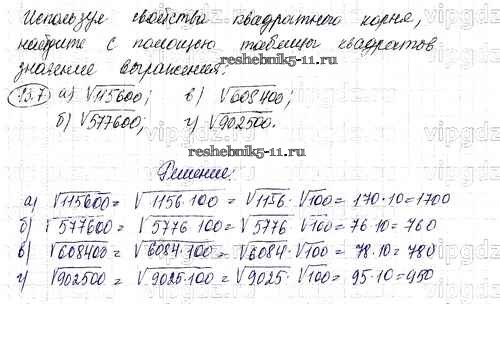 Используя свойства квадратного корня,
найдите с помощью таблицы квадратов
значение выражения:
reshebnik5-11.ru
15.7 а) √115600; в) √608400;
б) √577600; г) √902500.
reshebnik5-11.ru
Решение:
а) √115600 = √1156·100 = √1156·√100 = 170·10=1700
б) √577600 = √5776·100 = √5776·√100 = 76·10=760
в) √608400 = √6084·100 = √6084·√100 = 78·10=780
г) √902500 = √9025·100 = √9025·√100 = 95·10=950